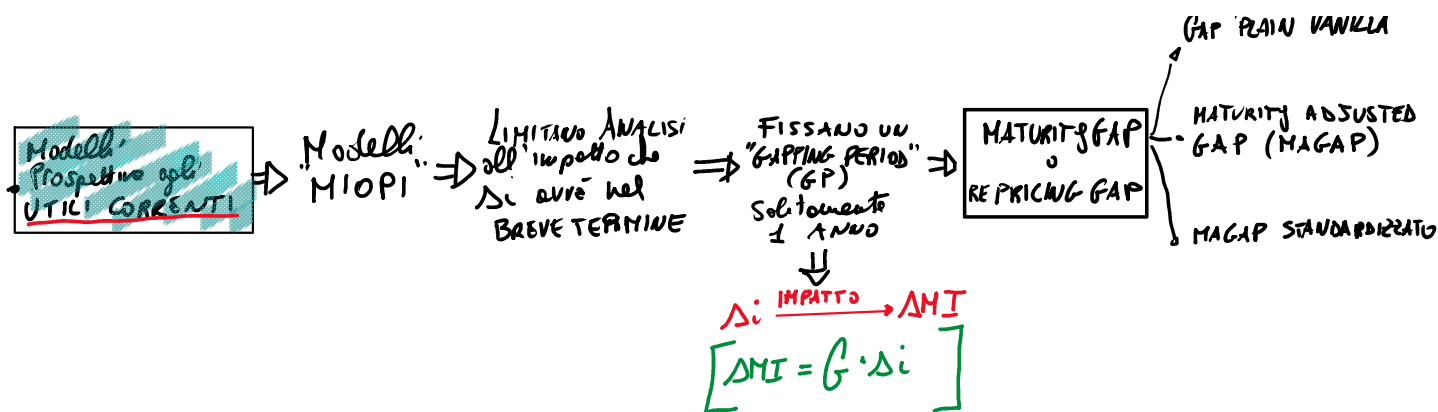 Modelli
Prospettiva agli
UTILI CORRENTI
Modelli
"MIOPI"
LIMITANO ANALISI
all'impatto che
Δi avrà nel
BREVE TERMINE
FISSANO UN
"GAPPING PERIOD"
(GP)
Solitamente
1 ANNO
Δi IMPATTO → ΔMI
[ΔMI = G · Δi]
MATURITY GAP
o
REPRICING GAP
GAP PLAIN VANILLA
MATURITY ADJUSTED
GAP (MAGAP)
MAGAP STANDARDIZZATO